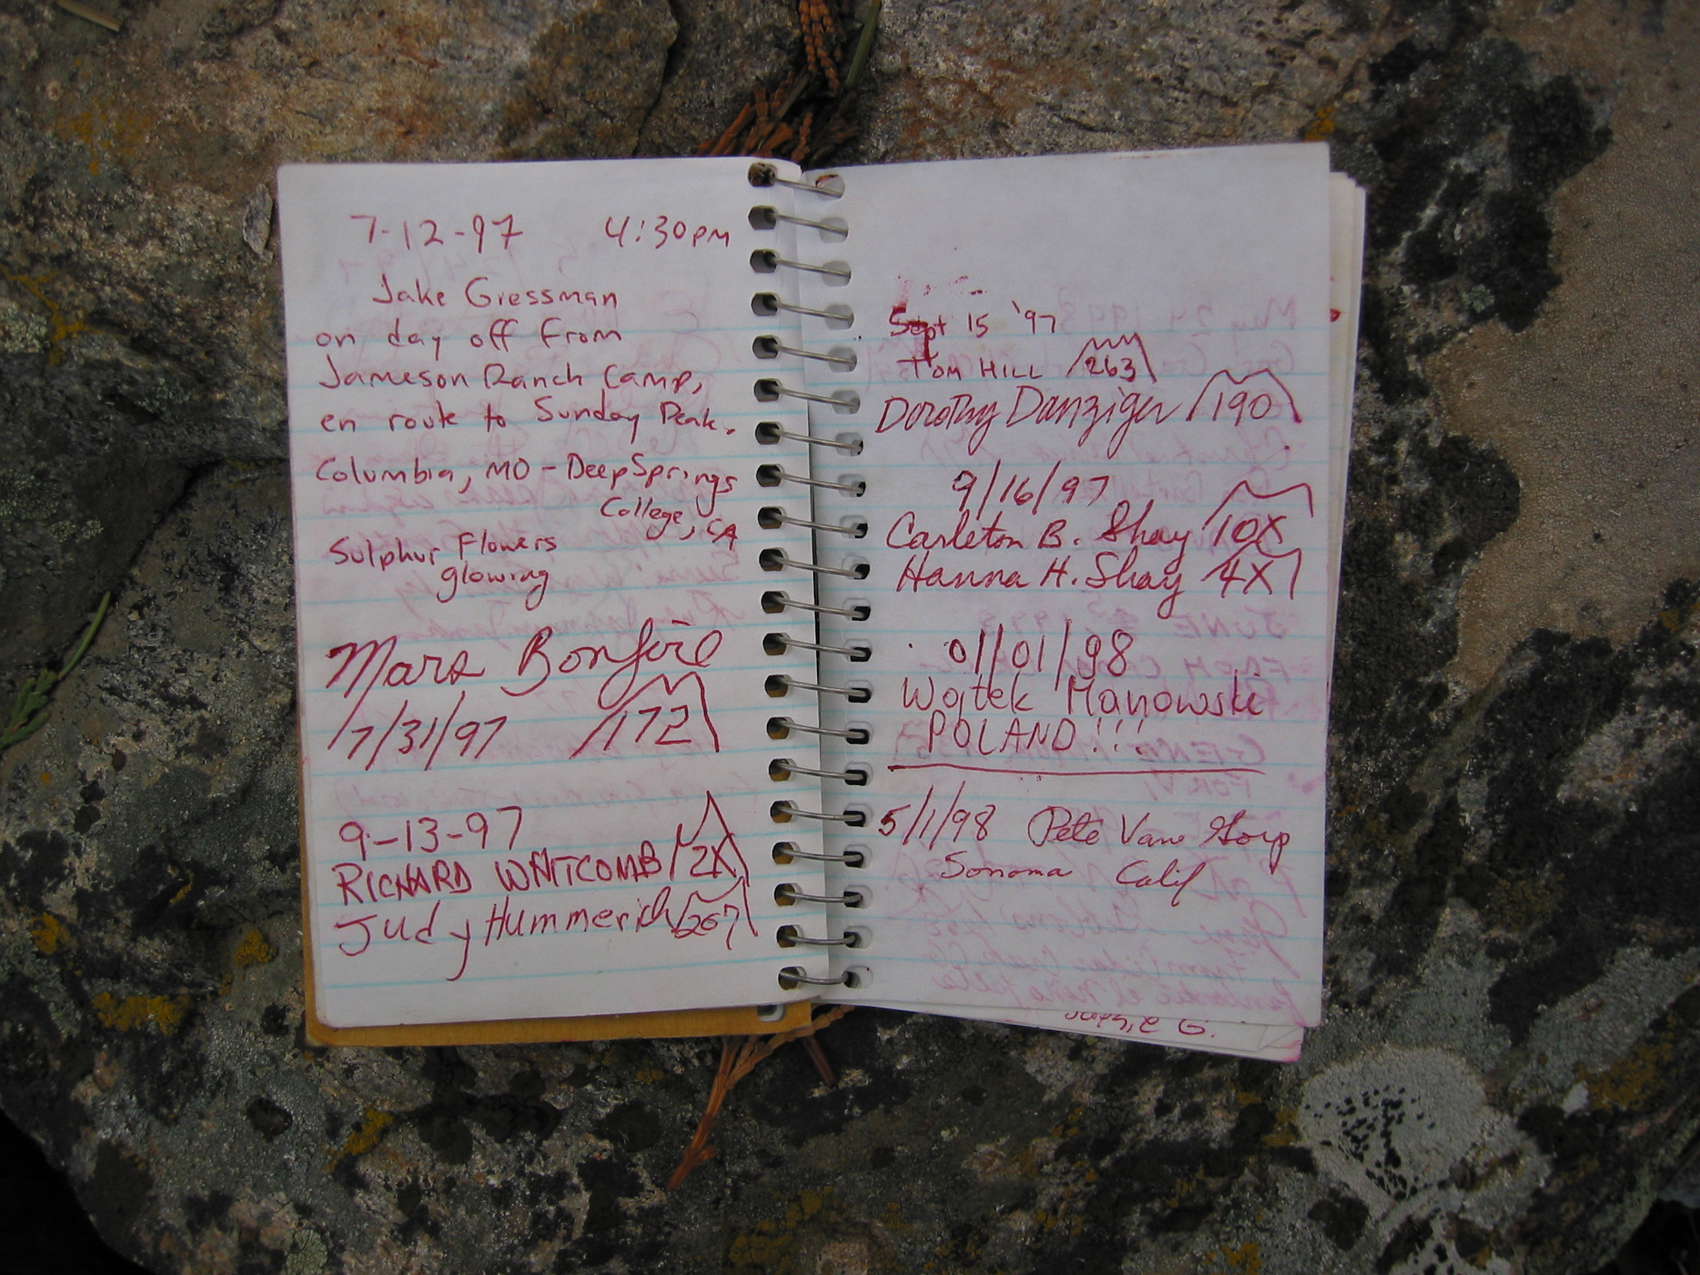 7-12-97 4:30PM
Jake Gressman
on day off from
Jameson Ranch Camp,
en route to Sunday Peak.
Columbia, MO - Deep Springs
College, CA
Sulphur Flowers
glowing
Mars Bonfire
7/31/97 172
9-13-97
RICHARD WHITCOMB 2X
Judy Hummerich 267
Sept 15 '97
TOM HILL 263
Dorothy Danziger 190
9/16/97
Carleton B. Shay 10X
Hanna H. Shay 4X
01/01/98
Wojtek Manowski
POLAND!!!
5/1/98 Pete Van Gorp
Sonoma Calif